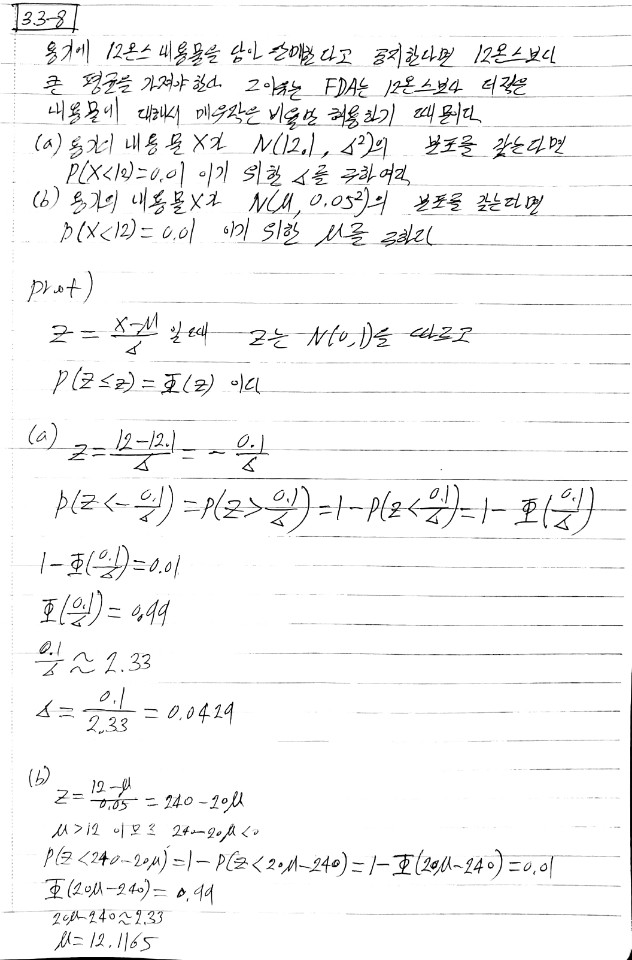 3.3-8
용기에 12온스 내용물을 담아 판매한다고 공지한다면 12온스보다
큰 평균을 가져야한다. 그 이유는 FDA는 12온스보다 더 작은
내용물에 대해서 매우작은 비율만 허용하기 때문이다
(a) 용기의 내용물 X가 N(12.1, σ²)의 분포를 갖는다면
P(X<12)=0.01 이기 위한 σ를 구하여라
(b) 용기의 내용물 X가 N(μ, 0.05²)의 분포를 갖는다면
P(X<12)=0.01 이기 위한 μ를 구하라
proof)
Z = (X-μ)/σ 일때 Z는 N(0,1)을 따르고
P(Z≤z) = Φ(z) 이다
(a) Z = (12-12.1)/σ = - 0.1/σ
P(Z<-0.1/σ) = P(Z>0.1/σ) = 1-P(Z<0.1/σ) = 1-Φ(0.1/σ)
1-Φ(0.1/σ)=0.01
Φ(0.1/σ) = 0.99
0.1/σ ≈ 2.33
σ = 0.1/2.33 = 0.0429
(b) Z = (12-μ)/0.05 = 240-20μ
μ>12 이므로 240-20μ<0
P(Z<240-20μ)=1-P(Z<20μ-240)=1-Φ(20μ-240)=0.01
Φ(20μ-240)= 0.99
20μ-240≈2.33
μ=12.1165